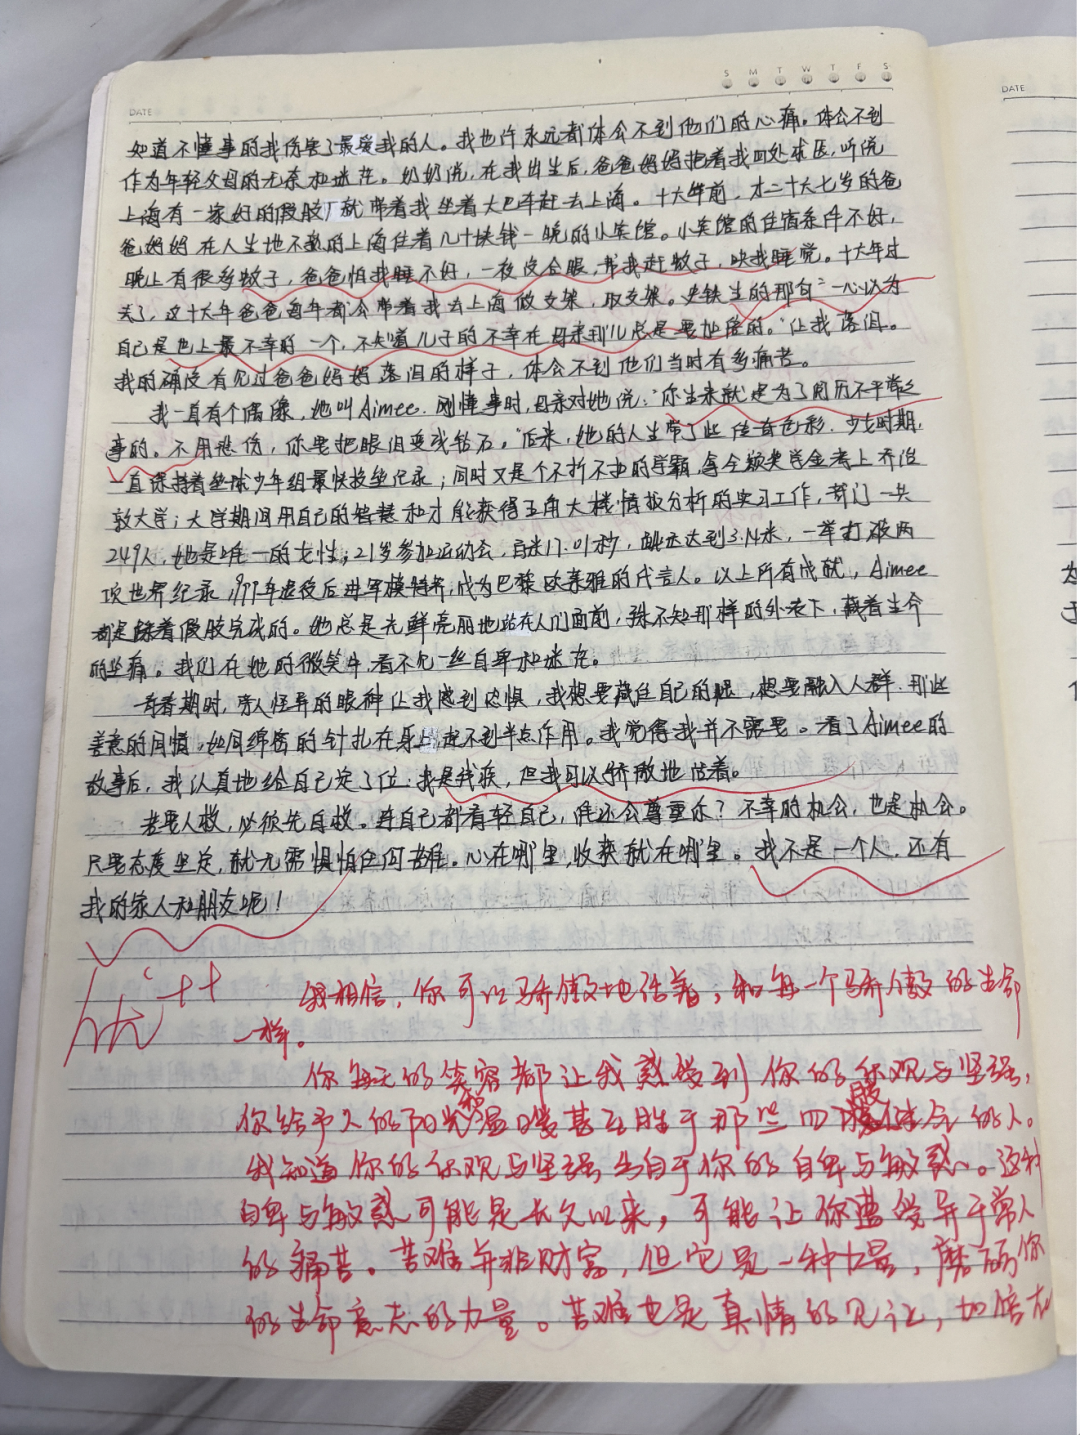 S M T W T F S
DATE
DATE
知道不懂事的我伤害了最爱我的人。我也许永远都体会不到他们的心痛。体会不到
作为年轻父母的无奈和迷茫。奶奶说,在我出生后,爸爸妈妈抱着我四处求医,听说
上海有一家好的假肢厂就带着我坐着大巴车赶去上海。十六年前,才二十六七岁的爸
爸妈妈在人生地不熟的上海住着几十块钱一晚的小宾馆。小宾馆的住宿条件不好,
晚上有很多蚊子,爸爸怕我睡不好,一夜没合眼,帮我赶蚊子,哄我睡觉。十六年过
去了,这十六年爸爸每年都会带着我去上海做支架,取支架。史铁生的那句“一心以为
自己是世上最不幸的一个,不知道儿子的不幸在母亲那儿总是要加倍的。”让我落泪。
我的确没有见过爸爸妈妈落泪的样子,体会不到他们当时有多痛苦。
我一直有个偶像,她叫Aimee.刚懂事时,母亲对她说:“你生来就是为了阅历不平常之
事的。不用悲伤,你要把眼泪变成钻石。”后来,她的人生带了些传奇色彩.少女时期,
一直保持着垒球少年组最快投垒纪录;同时又是个不折不扣的学霸,拿全额奖学金考上乔治
敦大学;大学期间用自己的智慧和才能获得五角大楼情报分析的实习工作,部门一共
249人,她是唯一的女性;21岁参加运动会,百米17.01秒,跳远达到3.14米,一举打破两
项世界纪录,97年退役后进军模特界,成为巴黎欧莱雅的代言人。以上所有成就,Aimee
都是踩着假肢完成的。她总是光鲜亮丽地站在人们面前,殊不知那样的外表下,藏着生命
的坐痛。我们在她的微笑中,看不见一丝自卑和迷茫。
青春期时,旁人怪异的眼神让我感到恐惧,我想要藏住自己的腿,想要融入人群.那些
善意的同情,如同绵密的针扎在身上,起不到半点作用。我觉得我并不需要。看了Aimee的
故事后,我认真地给自己定了位:我是残疾,但我可以骄傲地活着。
若要人救,必须先自救。连自己都看轻自己,谁还会尊重你?不幸的机会,也是机会。
只要态度坚定,就无需惧怕任何苦难。心在哪里,收获就在哪里。我不是一个人,还有
我的家人和朋友呢!
我相信,你可以骄傲地活着,和每一个骄傲的生命
一样。
你每天的笑容都让我感受到你的乐观与坚强,
你给予人的阳光和温暖甚至胜于那些四肢健全的人。
我知道你的乐观与坚强出自于你的自卑与敏感。这种
自卑与敏感可能是长久以来,可能让你遭受异于常人
的痛苦。苦难并非财富,但它是一种力量,磨砺你
的生命意志的力量。苦难也是真情的见证,加倍